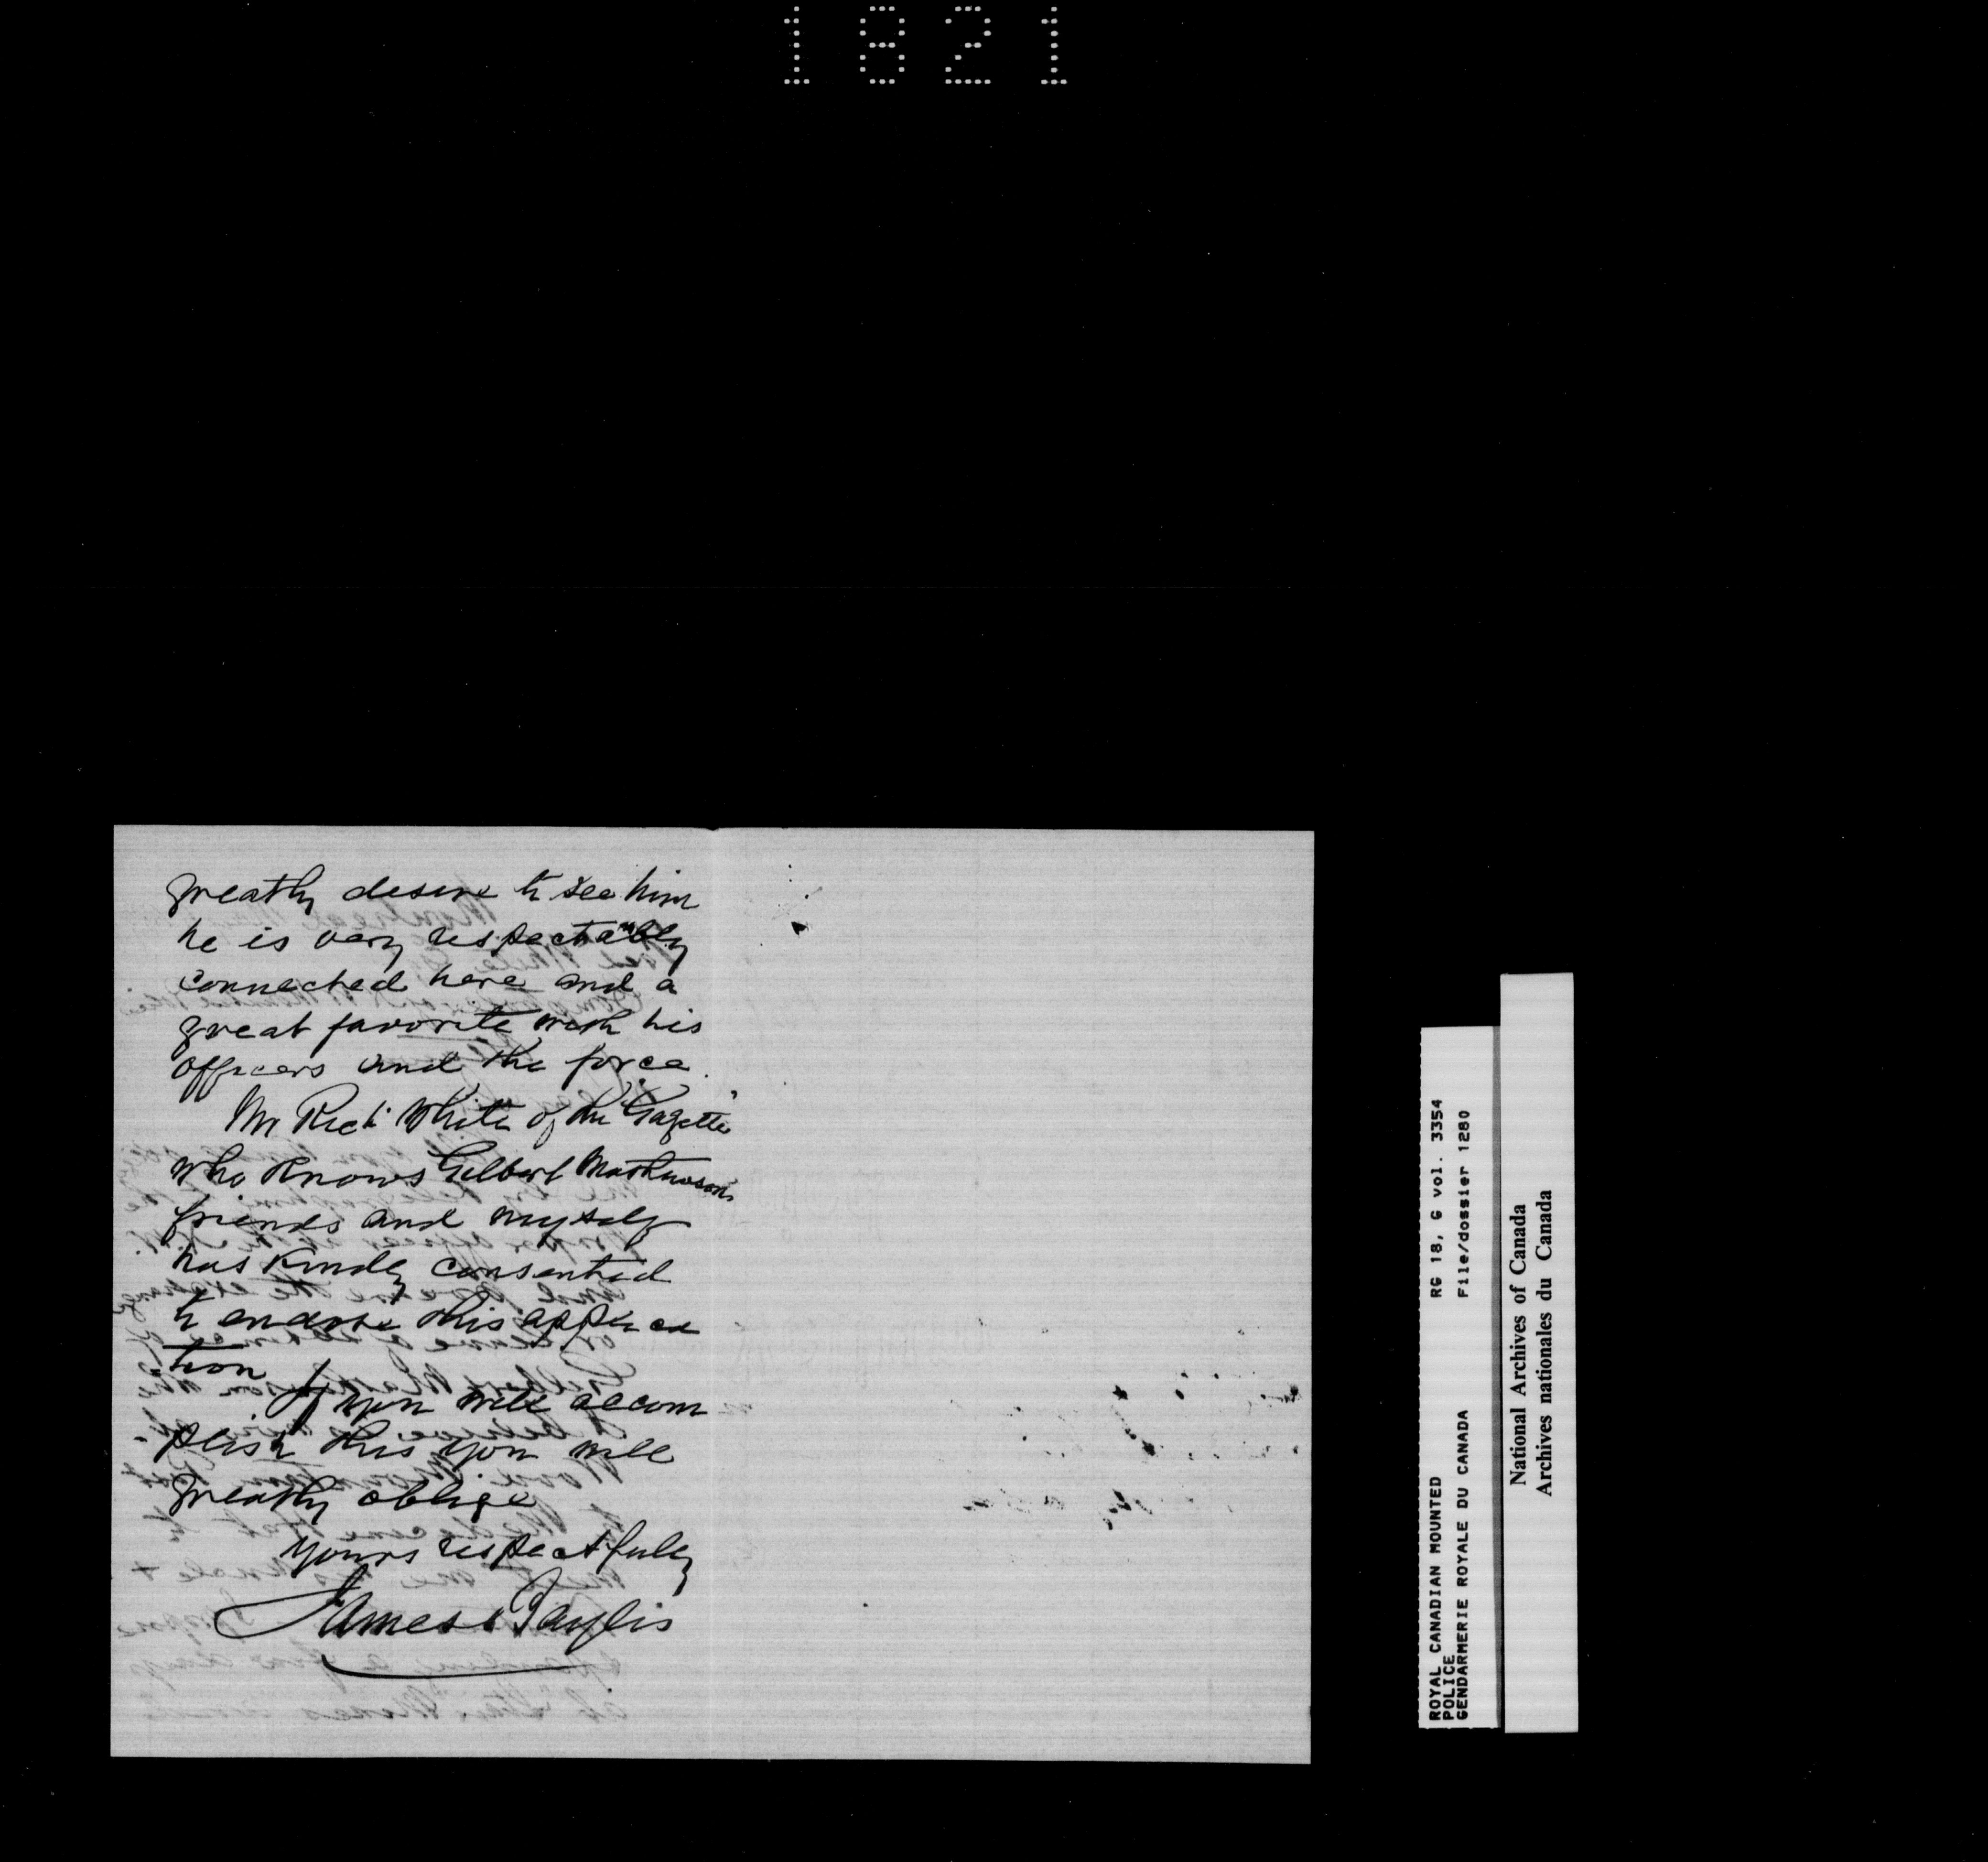 1821
greatly desire to see him
he is very respectably
connected here and a
great favorite with his
officers and the force.
Mr Richd White of the "Gazette"
who knows Gilbert Mathewson's
friends and myself
has kindly consented
to endorse this applica
tion
If you will accom
plish this you will
greatly oblige
yours respectfully
James Baylis
ROYAL CANADIAN MOUNTED RG 18, G vol. 3354
POLICE
GENDARMERIE ROYALE DU CANADA File/dossier 1280
National Archives of Canada
Archives nationales du Canada